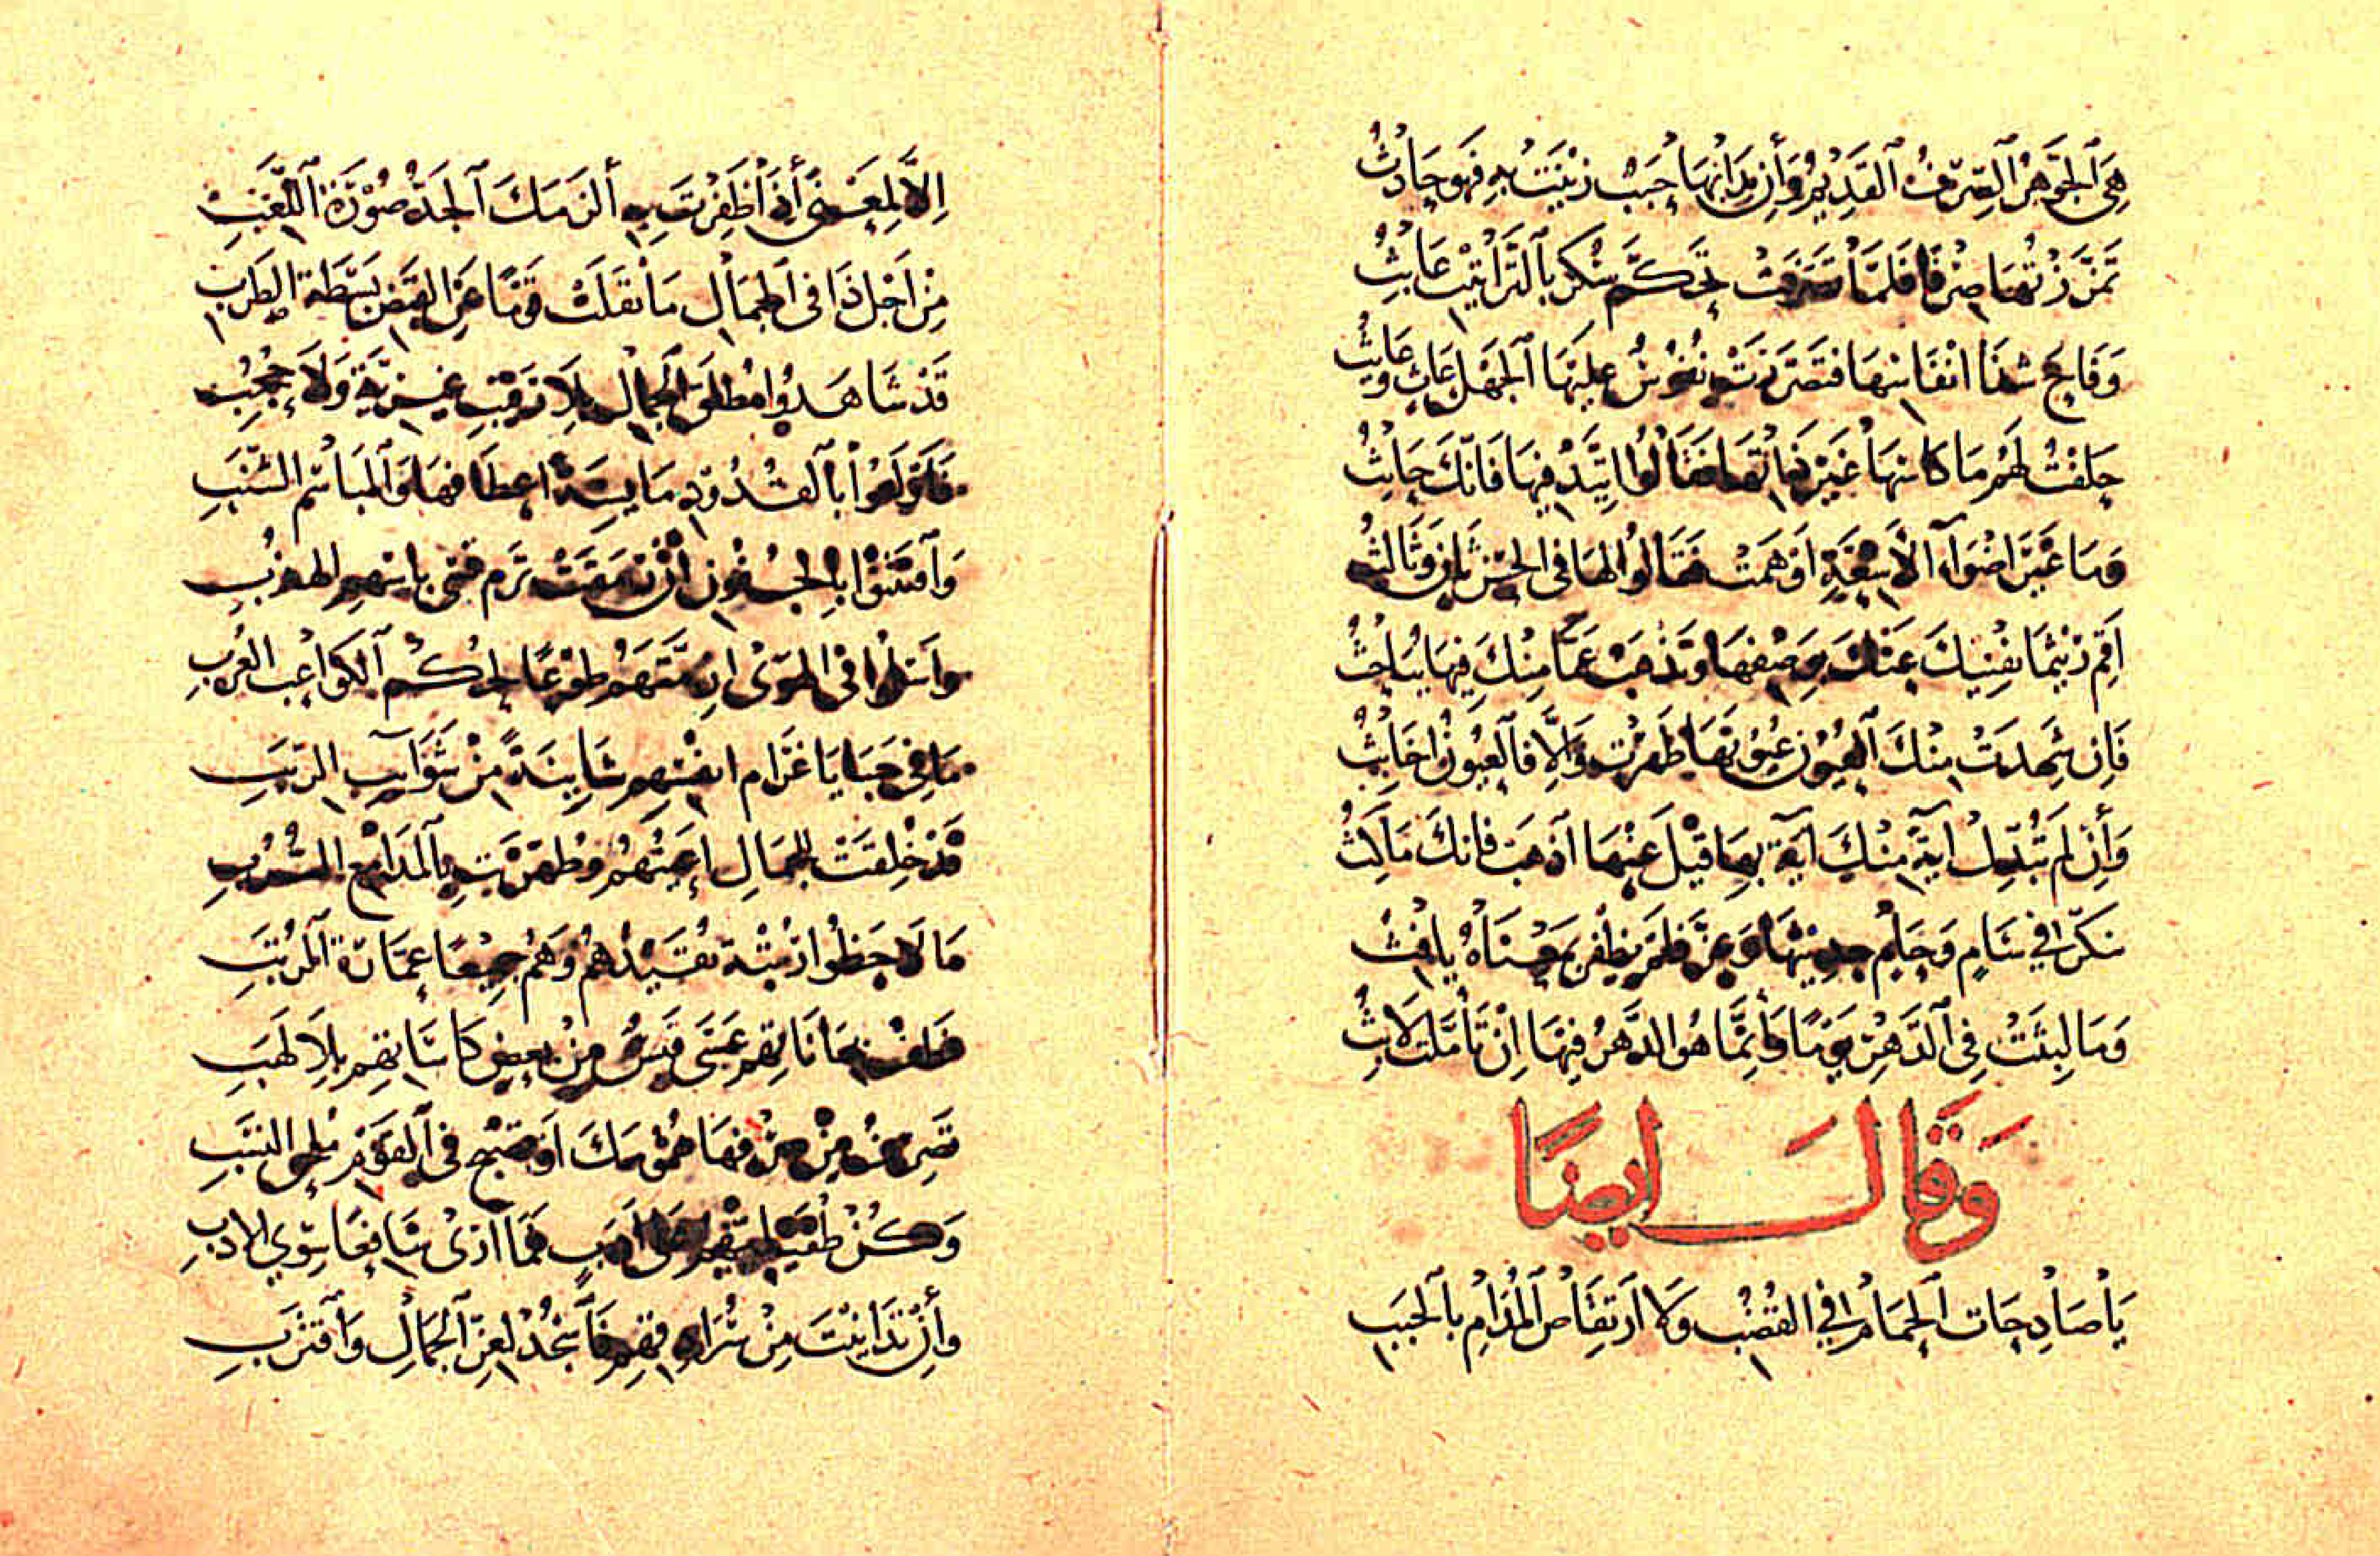 هِيَ الْجَوْهَرُ الصِّرْفُ الْقَدِيمُ وَأِن بَدَا لَهَا حَبَبٌ زِينَتْ بِهِ فَهُوَ حَادِثُ
تَمَزَّزْتُهَا صِرْفًا فَلَمَّا تَصَرَّفَتْ تَحَكَّمَ سُكْرٌ بِالتَّرَائِبِ عَابِثُ
وَفَاحَ شَذَا انْفَاسِهَا فَتَضَرَّرَتْ نُفُوسٌ عَلَيْهَا الْجَهْلُ عَاثٍ وَعَايِثُ
حَلَفْتُ لَهُمْ مَا كَاسُهَا غَيْرَ ذَاتِهَا فَقَالُوا اتَّئِدْ فِيهَا فَانَّكَ حَانِثُ
وَمَا غَيَّرَ اضْوَاءَ الْأَشِعَّةِ اَوْهَمَتْ فَقَالُوا لَهَا فِي الْحُسْنِ ثَانٍ وَثَالِثُ
اَقِمْ رَيْثَمَا تُفْنِيكَ عَنْكَ بِوَصْفِهَا وَتَذْهَبُ عَمَّا مِنْكَ فِيهَا يُبَاحِثُ
فَاِن شَهِدَتْ مِنْكَ الْعُيُونُ عُيُوبَهَا طَهُرْتَ وَاِلَّا فَالْعُيُونُ اخَابِثُ
وَأِنْ لَمْ تُبَدِّلْ آيَةً مِنْكَ آيَةٌ بِهَا قِيلَ عَنْهَا اذْهَبْ فَانَّكَ مَاكِثُ
تَكَرَّرَ فِي سَامٍ وَحَامٍ حَدِيثُهَا وَعَزَّ فَلَمْ يَظْفَرْ بِمَعْنَاهُ يَافِثُ
وَمَا لَبِثَتْ فِي الدَّهْرِ يَوْمًا وَاِنَّمَا هُوَ الدَّهْرُ فِيهَا اِنْ تَأَمَّلْتَ لَابِثُ
وَقَالَ ايضًا
يَا صَادِحَاتِ الْحَمَامِ فِي الْقُضُبِ وَلَا ارْتِقَاصَ الْمُدَامِ بِالْحَبَبِ
اِلَّا لِمَعْنًى أِذَا ظَفِرْتَ بِهِ أَلْزَمَكَ الْجِدُّ صُورَةَ اللَّعِبِ
مِنْ اَجْلِ ذَا فِي الْجَمَالِ مَا نَقَلَتْ قَوْمًا عَنِ الْقَبْضِ بَسْطَةُ الطَّرَبِ
قَدْ شَاهَدُوا مُطْلَقَ الْجَمَالِ بِلَا رَقِيبِ غَيْرِيَّةٍ وَلَا حُجُبِ
فَاَوْلَعُوا بِالْقُدُودِ مَايِسَةً اعْطَافُهَا وَالْمَبَاسِمِ الشَّنَبِ
وَافْتَتَنُوا بِالْجُفُونِ اِنْ رَمَقَتْ تَرْمِ قِسِيٌّ بِاَسْهُمِ الْهُدُبِ
وَاَسْلَمُوا فِي الْهَوَى اَزِمَّتَهُمْ طَوْعًا لِحُكْمِ الْكَوَاعِبِ الْعُرُبِ
مَا فِي خَبَايَا غَرَامِ انْفُسِهِمْ شَايِبَةٌ مِنْ شَوَايِبِ الرِّيَبِ
قَدْ خُلِقَتْ لِلْجَمَالِ اَعْيُنُهُمْ وَطُهِّرَتْ بِالْمَدَامِعِ السُّرُبِ
مَا لَاحَظُوا رُتْبَةً تُقَيِّدُهُمْ وَهُمْ جَمِيعًا عِمَارَةُ الرُّتَبِ
فَطُفْ بِحَانَاتِهِمْ عَسَى قَبَسٌ مِنْ بَعْضِ كَاسَاتِهِمْ بِلَا لَهَبِ
تَصْرِفُ مِنْ صِرْفِهَا هُمُومَكَ اَوْ تُصْبِحُ فِي الْقَوْمِ مُلْحَقَ النَّسَبِ
وَكُنْ طُفَيْلِيَّهُمْ عَلَى اَدَبٍ فَمَا اَرَى شَافِعًا سِوَى الْادَبِ
وَأِنْ تَدَانَيْتَ مِنْ سُرَادِقِهِمْ فَاسْجُدْ لِعِزِّ الْجَمَالِ وَاقْتَرِبِ